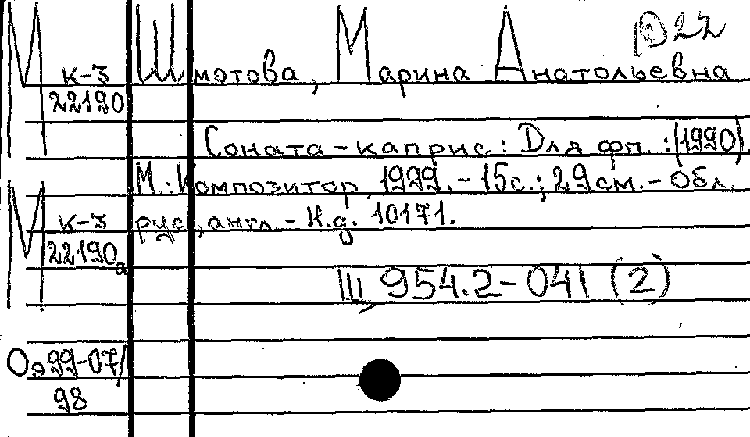 Ю22
М к-3 22190
Шмотова, Марина Анатольевна
Соната-каприс: Для фп.: (1990)
М.: Композитор, 1999. - 15с.; 29см. - Обл.
рус., англ. - Н.д. 10171.
М к-3 22190а
Ш 954.2-041 (2)
Оэ 99-07/
98